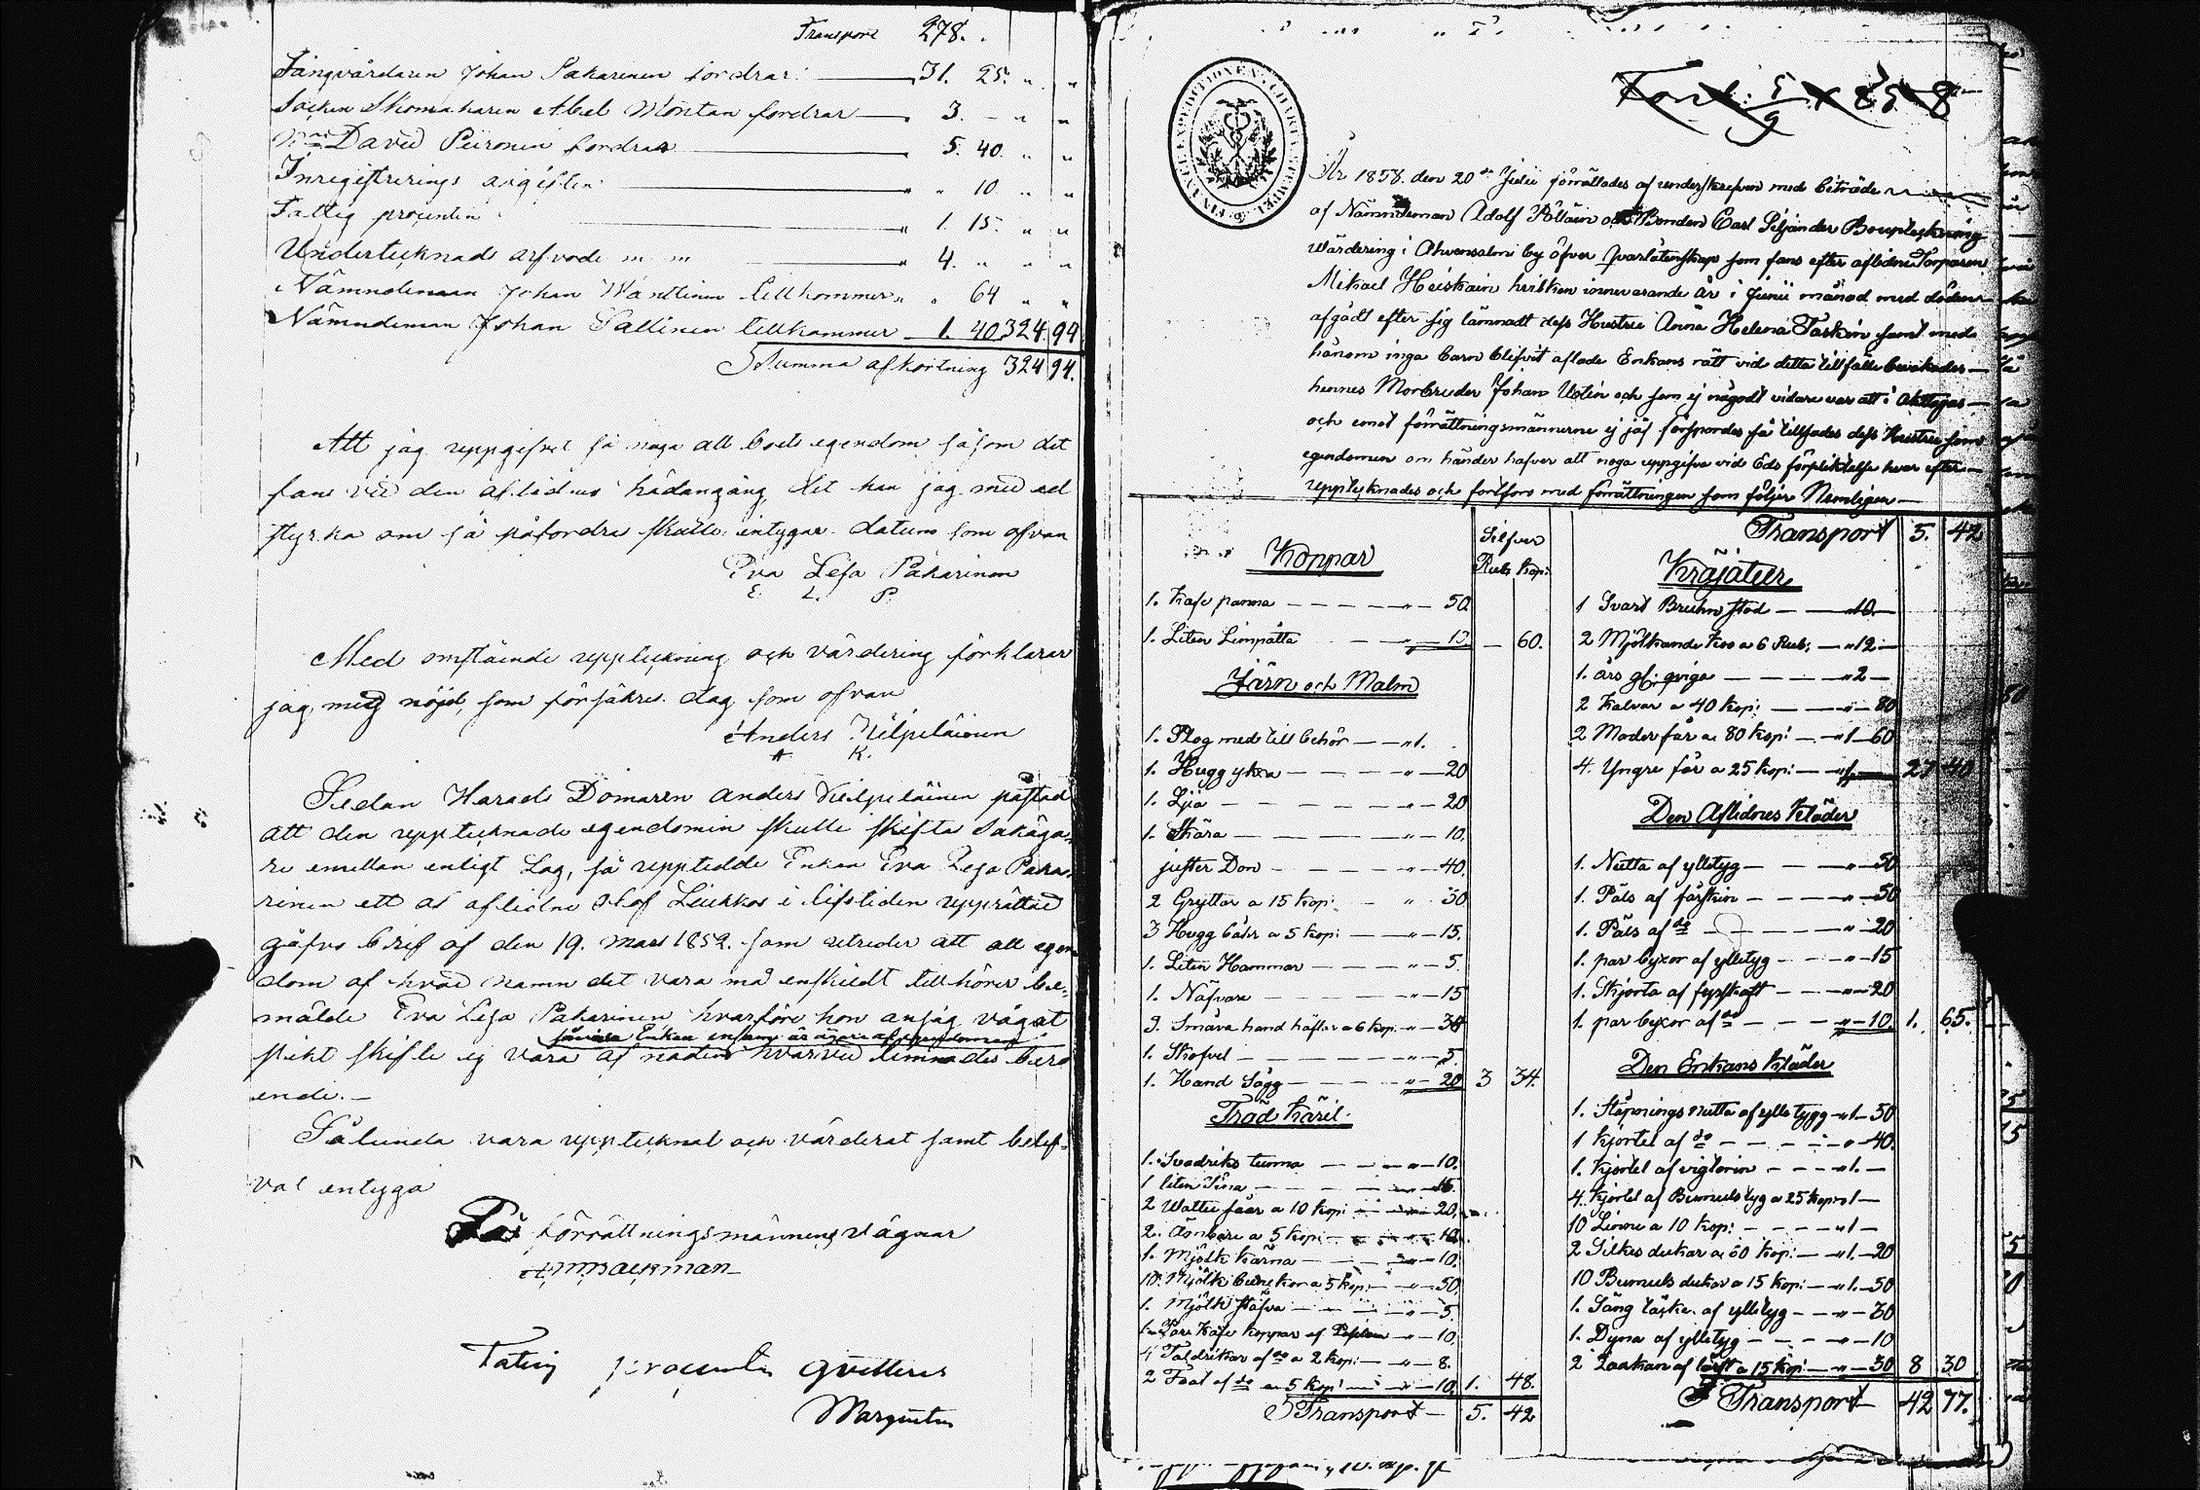 Transport 278.
Fångvårdaren Johan Pakarinen fordrar 31. 25. " "
Socken Skomakaren Abel Montan fordrar 3. - " "
David Piironen fordrar 5. 40. " "
Inregistrerings afgiften " 10 " "
Fattig procenten " 1. 15. " "
Undertecknads arfvode m m " 4. " " "
Nämndeman Johan Wänttinen tillkommer " " 64 " "
Nämndeman Johan Tallinen tillkommer 1. 40 324. 94
Summa afkortning 324 94.
Att jag uppgifvit så noga all boets egendom såsom det
fans vid den aflidnes hädangång, det kan jag med ed
styrka om så påfordras skulle: intygar. datum som ofvan
Eva Lesa Pakarinen
E. L. P.
Med omstående uppteckning och värdering förklarar
jag mig nöjd, som försäkras. dag som ofvan
Anders Kilpeläinen
A K.
Sedan Härads Domaren Anders Kilpeläinen påstod
att den upptecknade egendomen skulle skifta Sakäga-
re emellan enligt Lag, så uppteddde Enkan Eva Lesa Paka-
rinen ett af aflidne Olof Liukkos i lifstiden upprättad
gåfvo bref af den 19. Mars 1852. som utvider att all egen
dom af hvad namn det vara må enskildt tillhörer be-
mälde Eva Lesa Pakarinen hvarföre hon ansåg vägat
såvida Enkan ensam är ägare af egendomen
skift ej vara af nöden hvarvid lemnades bero
ende. -
Sålunda vara upptecknat och värderat samt blef-
vet intyga
På förrättningsmännens vägnar
Fattig procenten qvitteras
År 1858. den 20de Julii förrättades af underskrefven med biträde
af Nämndeman Adolf Pöllänen och Bonden Carl Siljander Bouppteckning
värdering i Ahvensalmi by öfver qvarlåtenskap som fans efter aflidne Torparen
Mikael Heiskain hvilken innevarande År i Junii månad med döden
afgådt efter sig lämnadt dess Hustru Anna Helena Taskin samt med
hånom inga barn blifvit aflade Enkans rätt vid detta tillfälle bevakades
hennes Morbroder Johan Ustin och som ej någodt vidare var att i akttagas
och emot förrättningsmännerne ej jäf försportes så tillsades dess Hustru som
egendomen om händer hafver att noga uppgifva vid Eds förpliktelse hvar efter
upptecknades och fortfors med förrättningen som följer Nemligen
Silfver
Rub. Kop:
Koppar
1. Kafe panna " 50
1. Liten Limpätta " 10 - 60.
Järn och Malm
1. Plog med till behör " 1.
1. Hugg yxa " 20
1. Lja " 20
1. Skära " 10.
juster Don 40.
2 Gryttor a 15 kop: " 30
3 Hugg bäkr a 5 kop: " 15.
1. Liten Hammar " 5
1. Näfvare " 15
1. Skofvel " 5
1. Hand Sågg " 20 3 34.
Träd Käril
1. Svadriks tunna " 10.
1 liten Tina
2 Wattu fäar a 10 kop: 20,
2. Ämbare a 5 kop: 10.
1. Mjölk Kärna 10.
10. Mjölk bunckor a 5 kop: " 50,
1. Mjölk stäfva " 5.
1 par Kafe koppar af Poslin " 10
4 Taldrikar af do a 2 kop: " 8.
2 Faat af do a 5 kop: " 10 1. 48.
Transport 5. 42
Transport 5. 42
Kräjatur
1 Svart Bruhn stod 10.
2 Mjölkande Kor a 6 Rub: " 12
1. års gl: qviga " 2
2 Kalvar a 40 kop: " 80
2 Moder får a 80 kop: " 1 60
4. Yngre får a 25 kop: " 1 27 40
Den Aflidnes Kläder
1. Nutta af ylletyg " 50
1. Päls af fårskin " 50
1. Päls af do " 20
1. par byxor af ylletyg " 15
1. Skjorta af fyrskaft " 20
1. par byxor af do " 10. 1. 65.
Den Enkans Kläder
1. Stäpnings nutta af ylle tygg " 1 50
1 Kjortel af do " 40.
1. Kjortel af viglorin " 1.
4. Kjortel af Bumuls tyg a 25 kop " 1
10 Linne a 10 kop: " 1
2 Silkes dukar a 60 kop: " 1. 20
10 Bumuls dukar a 15 kop: " 1. 50
1. Säng täcke af ylletyg " 30
1. Dyna af ylletyg " 10
2 Laakan af lärft a 15 kop: " 30 8 30
Transport 42 77.